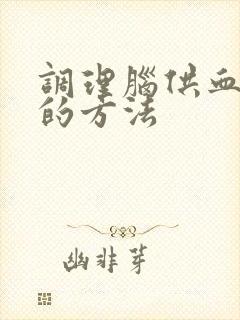 調理腦供血
的方法
幽非芽